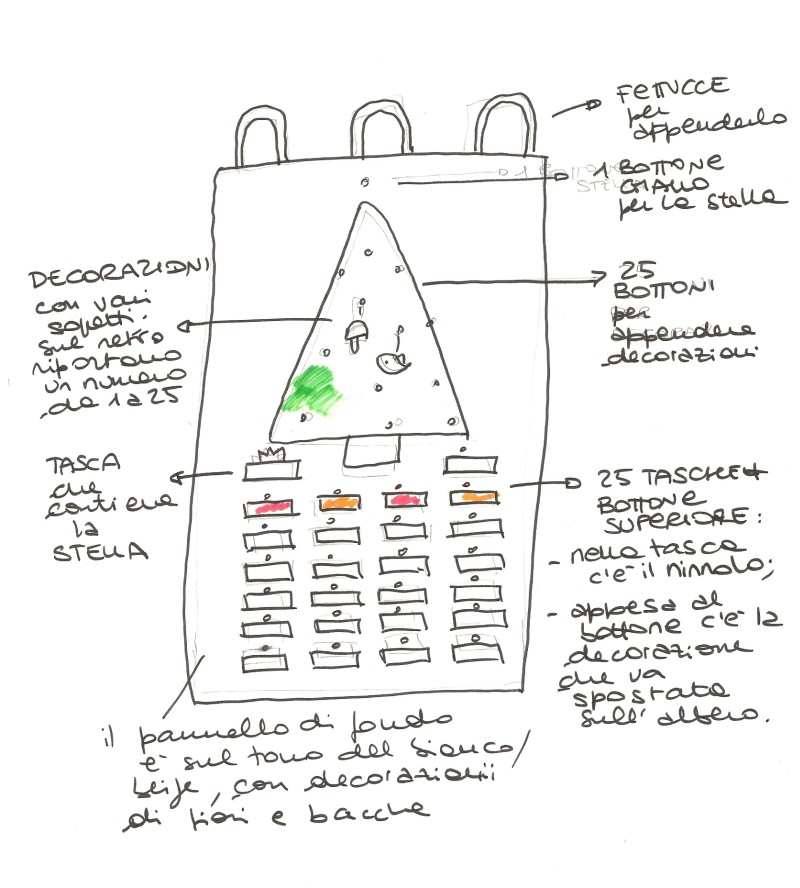 FETTUCCE
per
appenderlo
1 BOTTONE
CHIARO
per la stella
DECORAZIONI
con vari
soggetti.
sul retro
riportano
un numero
da 1 a 25
25
BOTTONI
per
appendere
decorazioni
TASCA
che
contiene
la
STELLA
25 TASCHE +
BOTTONE
SUPERIORE:
- nella tasca
c'è il ninnolo;
- appesa al
bottone c'è la
decorazione
che va
spostata
sull'albero.
il pannello di fondo
è sul tono del bianco/
beige, con decorazioni
di fiori e bacche